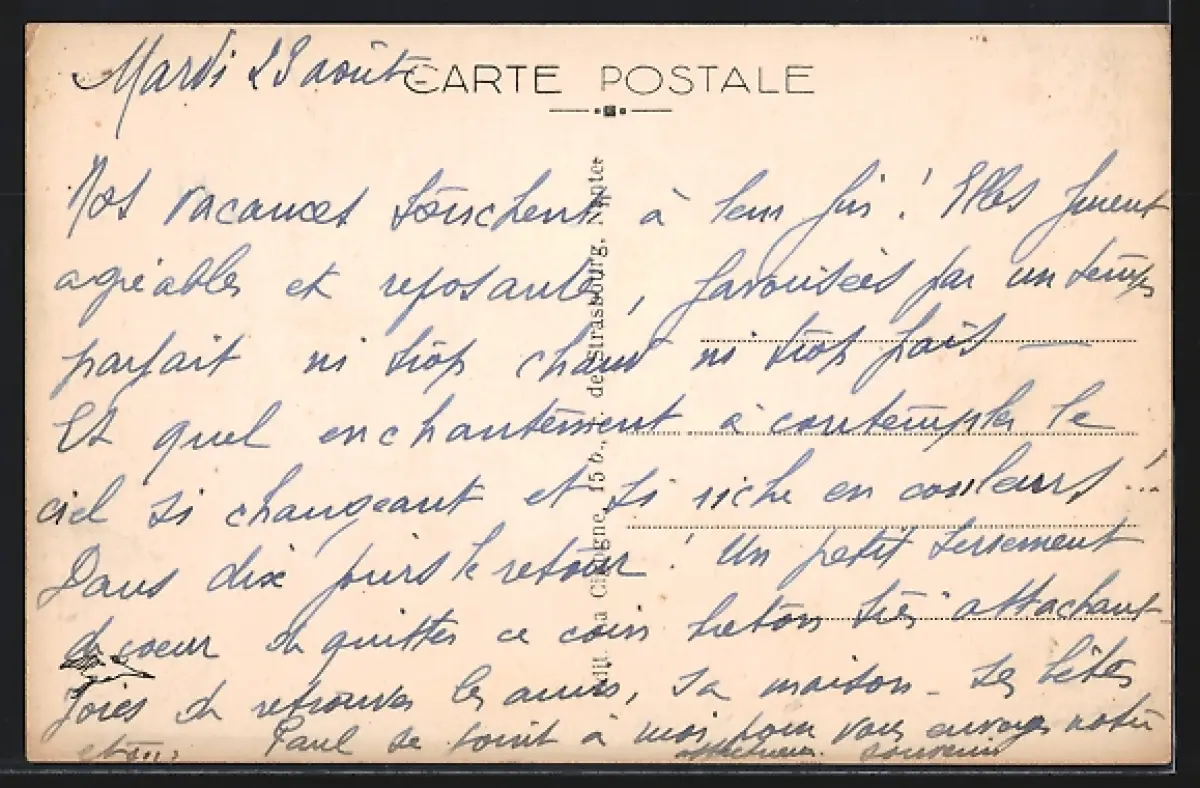 Mardi 23 août - CARTE POSTALE
Nos vacances touchent à leur fin ! Elles furent
agréables et reposantes, favorisées par un temps
parfait ni trop chaud ni trop frais —
Et quel enchantement à contempler le
ciel si changeant et si riche en couleurs !..
Dans dix jours le retour ! Un petit serrement
de coeur de quitter ce coin breton très attachant
Joies de retrouver les amis, sa maison - ses bêtes
etc...
Paul se joint à moi pour vous envoyer notre
affectueux souvenir
Edit. La Cigogne, 15 b., r. de Strasbourg, Nantes